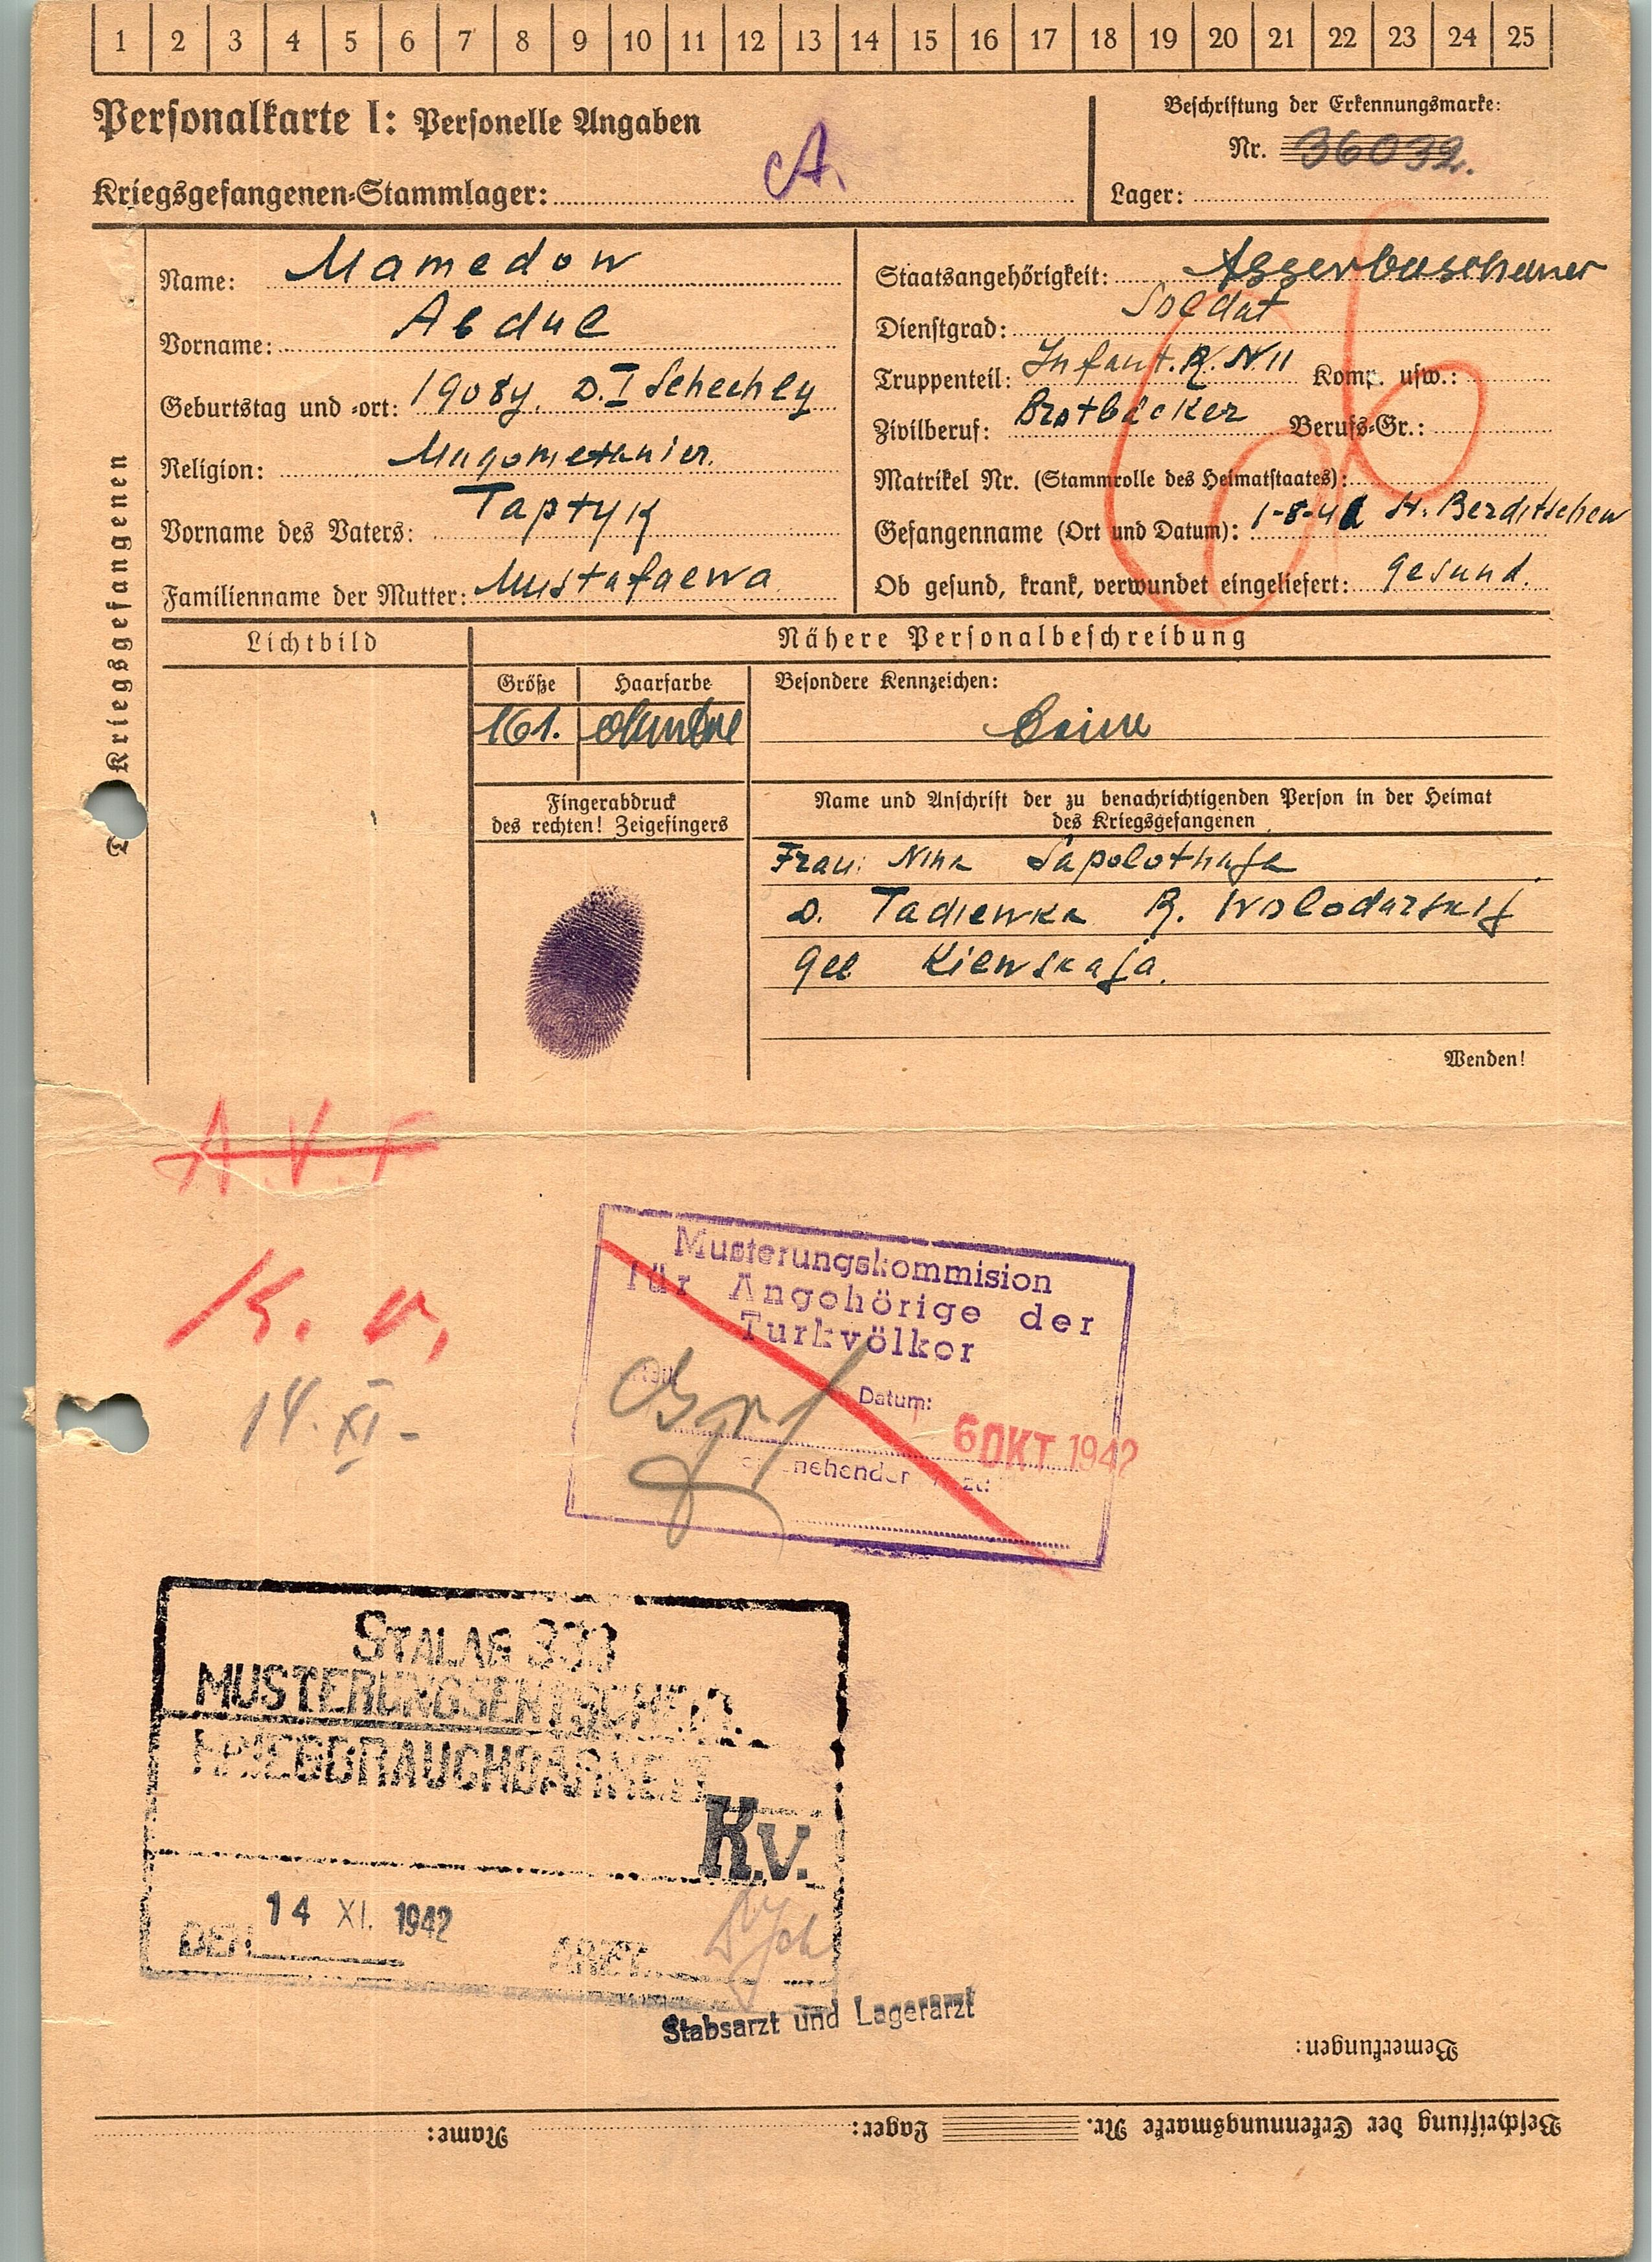 1 2 3 4 5 6 7 8 9 10 11 12 13 14 15 16 17 18 19 20 21 22 23 24 25
Personalkarte I: Personelle Angaben
Kriegsgefangenen-Stammlager: A.
Beschriftung der Erkennungsmarke:
Nr. 36032.
Lager:
Kriegsgefangenen
Name: Mamedow
Vorname: Abdul
Geburtstag und -ort: 1908y. D. I Schechly
Religion: Magometanier.
Vorname des Vaters: Taptyk
Familienname der Mutter: Mustafaewa
Staatsangehörigkeit: Asserbeischaner
Dienstgrad: Soldat
Truppenteil: Infant. R. N. 11 Komp. usw.:
Zivilberuf: Brotbäcker Berufs-Gr.:
Matrikel Nr. (Stammrolle des Heimatstaates):
Gefangenname (Ort und Datum): 1-8-41 St. Berditschew
Ob gesund, krank, verwundet eingeliefert: gesund.
Lichtbild
Nähere Personalbeschreibung
Größe Haarfarbe Besondere Kennzeichen:
161. dunkel Keine
Fingerabdruck
des rechten! Zeigefingers
Name und Anschrift der zu benachrichtigenden Person in der Heimat
des Kriegsgefangenen
Frau: Nina Sapolothaja
D. Tadiewka R. Wolodarskij
gel Kiewskaja.
Wenden!
A.V.F
K. v.
14. XI -
Musterungskommision
für Angehörige der
Turkvölker
Datum:
6 OKT 1942
STALAG 333
MUSTERUNGSENTSCHEID.
KRIEGBRAUCHBARKEIT
K.v.
DEN 14 XI. 1942
ARZT
Stabsarzt und Lagerarzt
Bemerkungen:
Beschriftung der Erkennungsmarke Nr. Lager: Name: